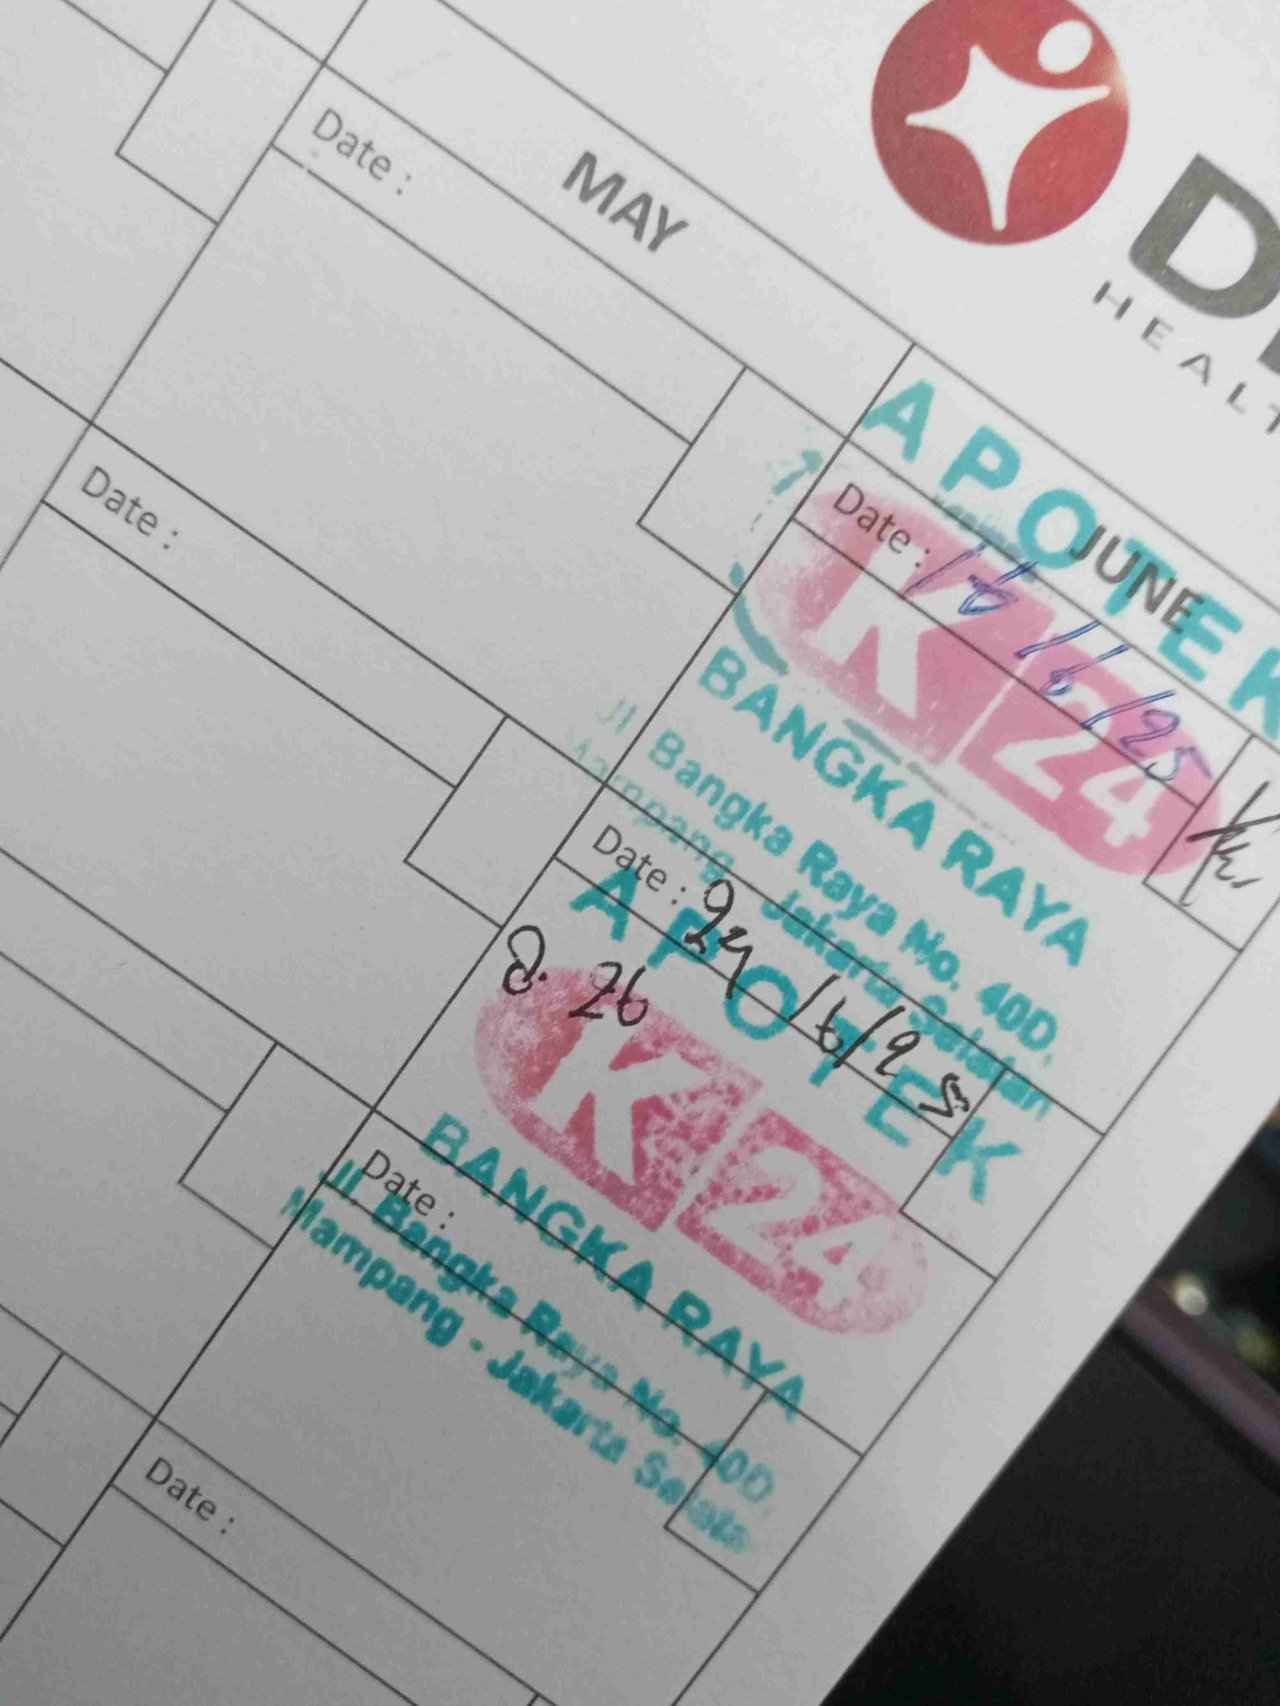 HEALT
MAY
JUNE
Date :
Date :
APOTEK
Date :
K 24
/6/25
BANGKA RAYA
Jl. Bangka Raya No. 40D,
Mampang - Jakarta Selatan
Date : 24/6/25
APOTEK
K 24
BANGKA RAYA
Date :
Jl. Bangka Raya No. 40D,
Mampang - Jakarta Selata
Date :